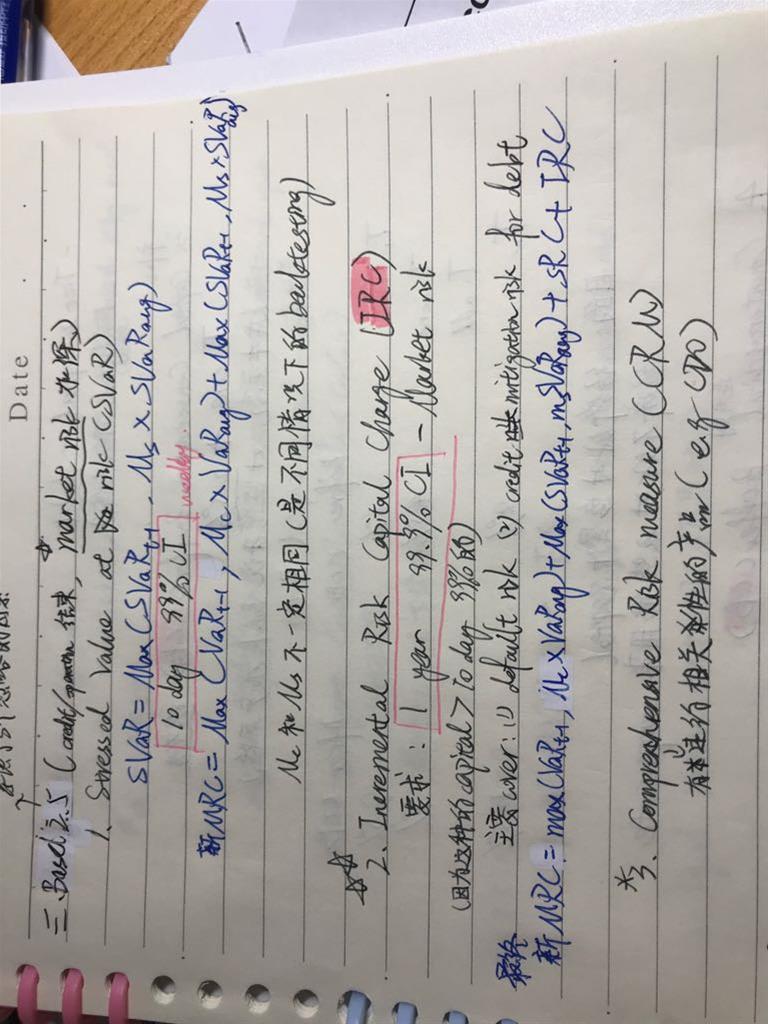 Date
二. Basel 2.5 (credit/operation 结束, market risk 攻陷)
1. Stressed Value at risk (SVaR)
SVaR = Max (SVaRt-1, Ms × SVaRavg)
10 day 99% CI weekly.
新MRC = Max (VaRt-1, Mc × VaRavg) + Max (SVaRt-1, Ms × SVaRavg)
Mc 和 Ms 不一定相同 (是不同情况下的backtesting)
2. Incremental Risk Capital Charge (IRC)
要求: 1 year 99.9% CI - Market risk
(因为这种的capital > 10 day 99%的)
主要cover: (1) default risk (2) credit mitigation risk for debt
最终
新MRC = max (VaRt-1, Mc × VaRavg) + Max (SVaRt-1, msSVaRavg) + SRC + IRC
*3. Comprehensive Risk measure (CRM)
有违约相关性的产品 (e.g CDO)